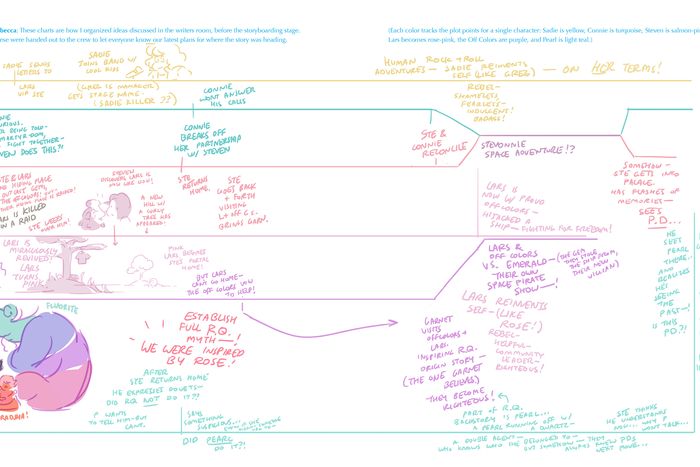 becca: These charts are how I organized ideas discussed in the writers room, before the storyboarding stage.
ese were handed out to the crew to let everyone know our latest plans for where the story was heading.
(Each color tracks the plot points for a single character: Sadie is yellow, Connie is turquoise, Steven is salmon-pi
Lars becomes rose-pink, the Off Colors are purple, and Pearl is light teal.)
SADIE SENDS
LETTERS TO
LARS
VIA STE
SADIE
JOINS BAND W/
COOL KIDS
(GREG IS MANAGER)
GETS STAGE NAME-
(SADIE KILLER??)
HUMAN ROCK + ROLL
ADVENTURES - SADIE REINVENTS
SELF (LIKE GREG) - ON HER TERMS!
REBEL-
SHAMELESS
FEARLESS-
INDULGENT!
BADASS!
CONNIE
WON'T ANSWER
HIS CALLS
CONNIE
BREAKS OFF
HER PARTNERSHIP
W/ STEVEN
STE &
CONNIE
RECONCILE
STEVONNIE
SPACE ADVENTURE!?
NIE
URIOUS.
R BEING TOLD-
MARTYRDOM,
FIGHT TOGETHER-
VEN DOES THIS?!
STE & LARS
HIDING PLACE
LARS IS KILLED
IN A RAID
STE WEEPS
OVER HIM!
STEVEN
DISCOVERS LARS IS
A NEW
HILL W/
A CURLY
TREE HAS
APPEARED!
STE
RETURNS
HOME.
STE
GOES BACK
+ FORTH
VISITING
L + OFF C.S.
GRINGS GARN.
LARS IS
NOW W/ PROUD
OFFCOLORS-
HIJACKED A
SHIP - FIGHTING FOR FREEDOM!
SOMEHOW-
STE GETS INTO
PALACE.
HAS FLASHES OF
MEMORIES-
SEES
P.D...
LARS IS
MIRACULOUSLY
REVIVED!
LARS
TURNS
PINK
PINK
LARS BECOMES
STE'S PORTAL
HOME!
BUT LARS
CAN'T GO HOME-
THE OFF COLORS VOW
TO HELP!
LARS &
OFF COLORS
VS. EMERALD-
-THEIR OWN
SPACE PIRATE
SHOW-!
(THE GEM
THEY STOLE
THE SHIP FROM,
THEIR NEW
VILLAIN)
HE
SEES
PEARL
THERE..
AND
REALIZES
HE'S
SEEING
THE
PAST-!
IS THIS
PD?!
LARS REINVENTS
SELF-(LIKE
ROSE!)
REBEL-
HELPFUL-
COMMUNITY
LEADER-
RIGHTEOUS!
FLUORITE
ESTABLISH
FULL R.Q.
MYTH-!
"WE WERE INSPIRED
BY ROSE!"
GARNET
VISITS
OFFCOLORS +
LARS.
INSPIRING R.Q.
ORIGIN STORY -
(THE ONE GARNET
BELIEVES)
-THEY BECOME
RIGHTEOUS!
AFTER
STE RETURNS HOME
HE EXPRESSES DOUBTS-
DID RQ NOT DO IT??
P WANTS
TO TELL HIM-BUT
CANT.
SAYS
SOMETHING
SUSPICIOUS...
DID PEARL
DO IT?!
PART OF R.Q.
BACKSTORY IS PEARL...
A PEARL RUNNING OFF W/
A QUARTZ-
A DOUBLE AGENT-
WHO KNOWS WHO SHE BELONGED TO-
BUT SOMEHOW- THEY
ALWAYS KNEW PD'S
NEXT MOVE...
STE THINKS
HE UNDERSTANDS
NOW... WHY P
WON'T TALK...